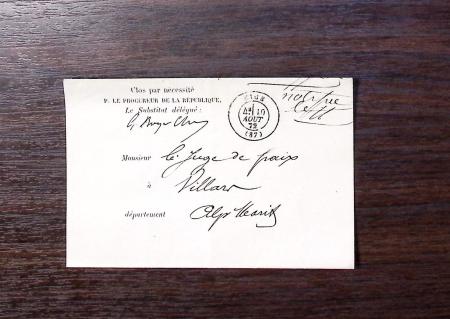 Clos par nécessité
P. LE PROCUREUR DE LA RÉPUBLIQUE,
Le Substitut délégué :
NICE
10
AOUT
72
(87)
Monsieur le Juge de paix
à Villars
département Alpes Marit